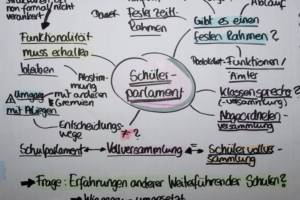 von formal nicht
verankert
Funktionalität
muss erhalten
bleiben
Fester Zeitl.
Rahmen
Ablauf
Gibt es einen
festen Rahmen?
Funktionen/
Ämter
Abstim-
mung
mit anderen
Gremien
Umgang
mit
Schüler-
parlament
Klassensprecher
(-versammlung)
Abgeordneten-
versammlung
Entscheidungs-
wege
* ?
Schulparlament
Vollversammlung
Schülervollver-
sammlung
→ Frage: Erfahrungen anderer Weiterführender Schulen?